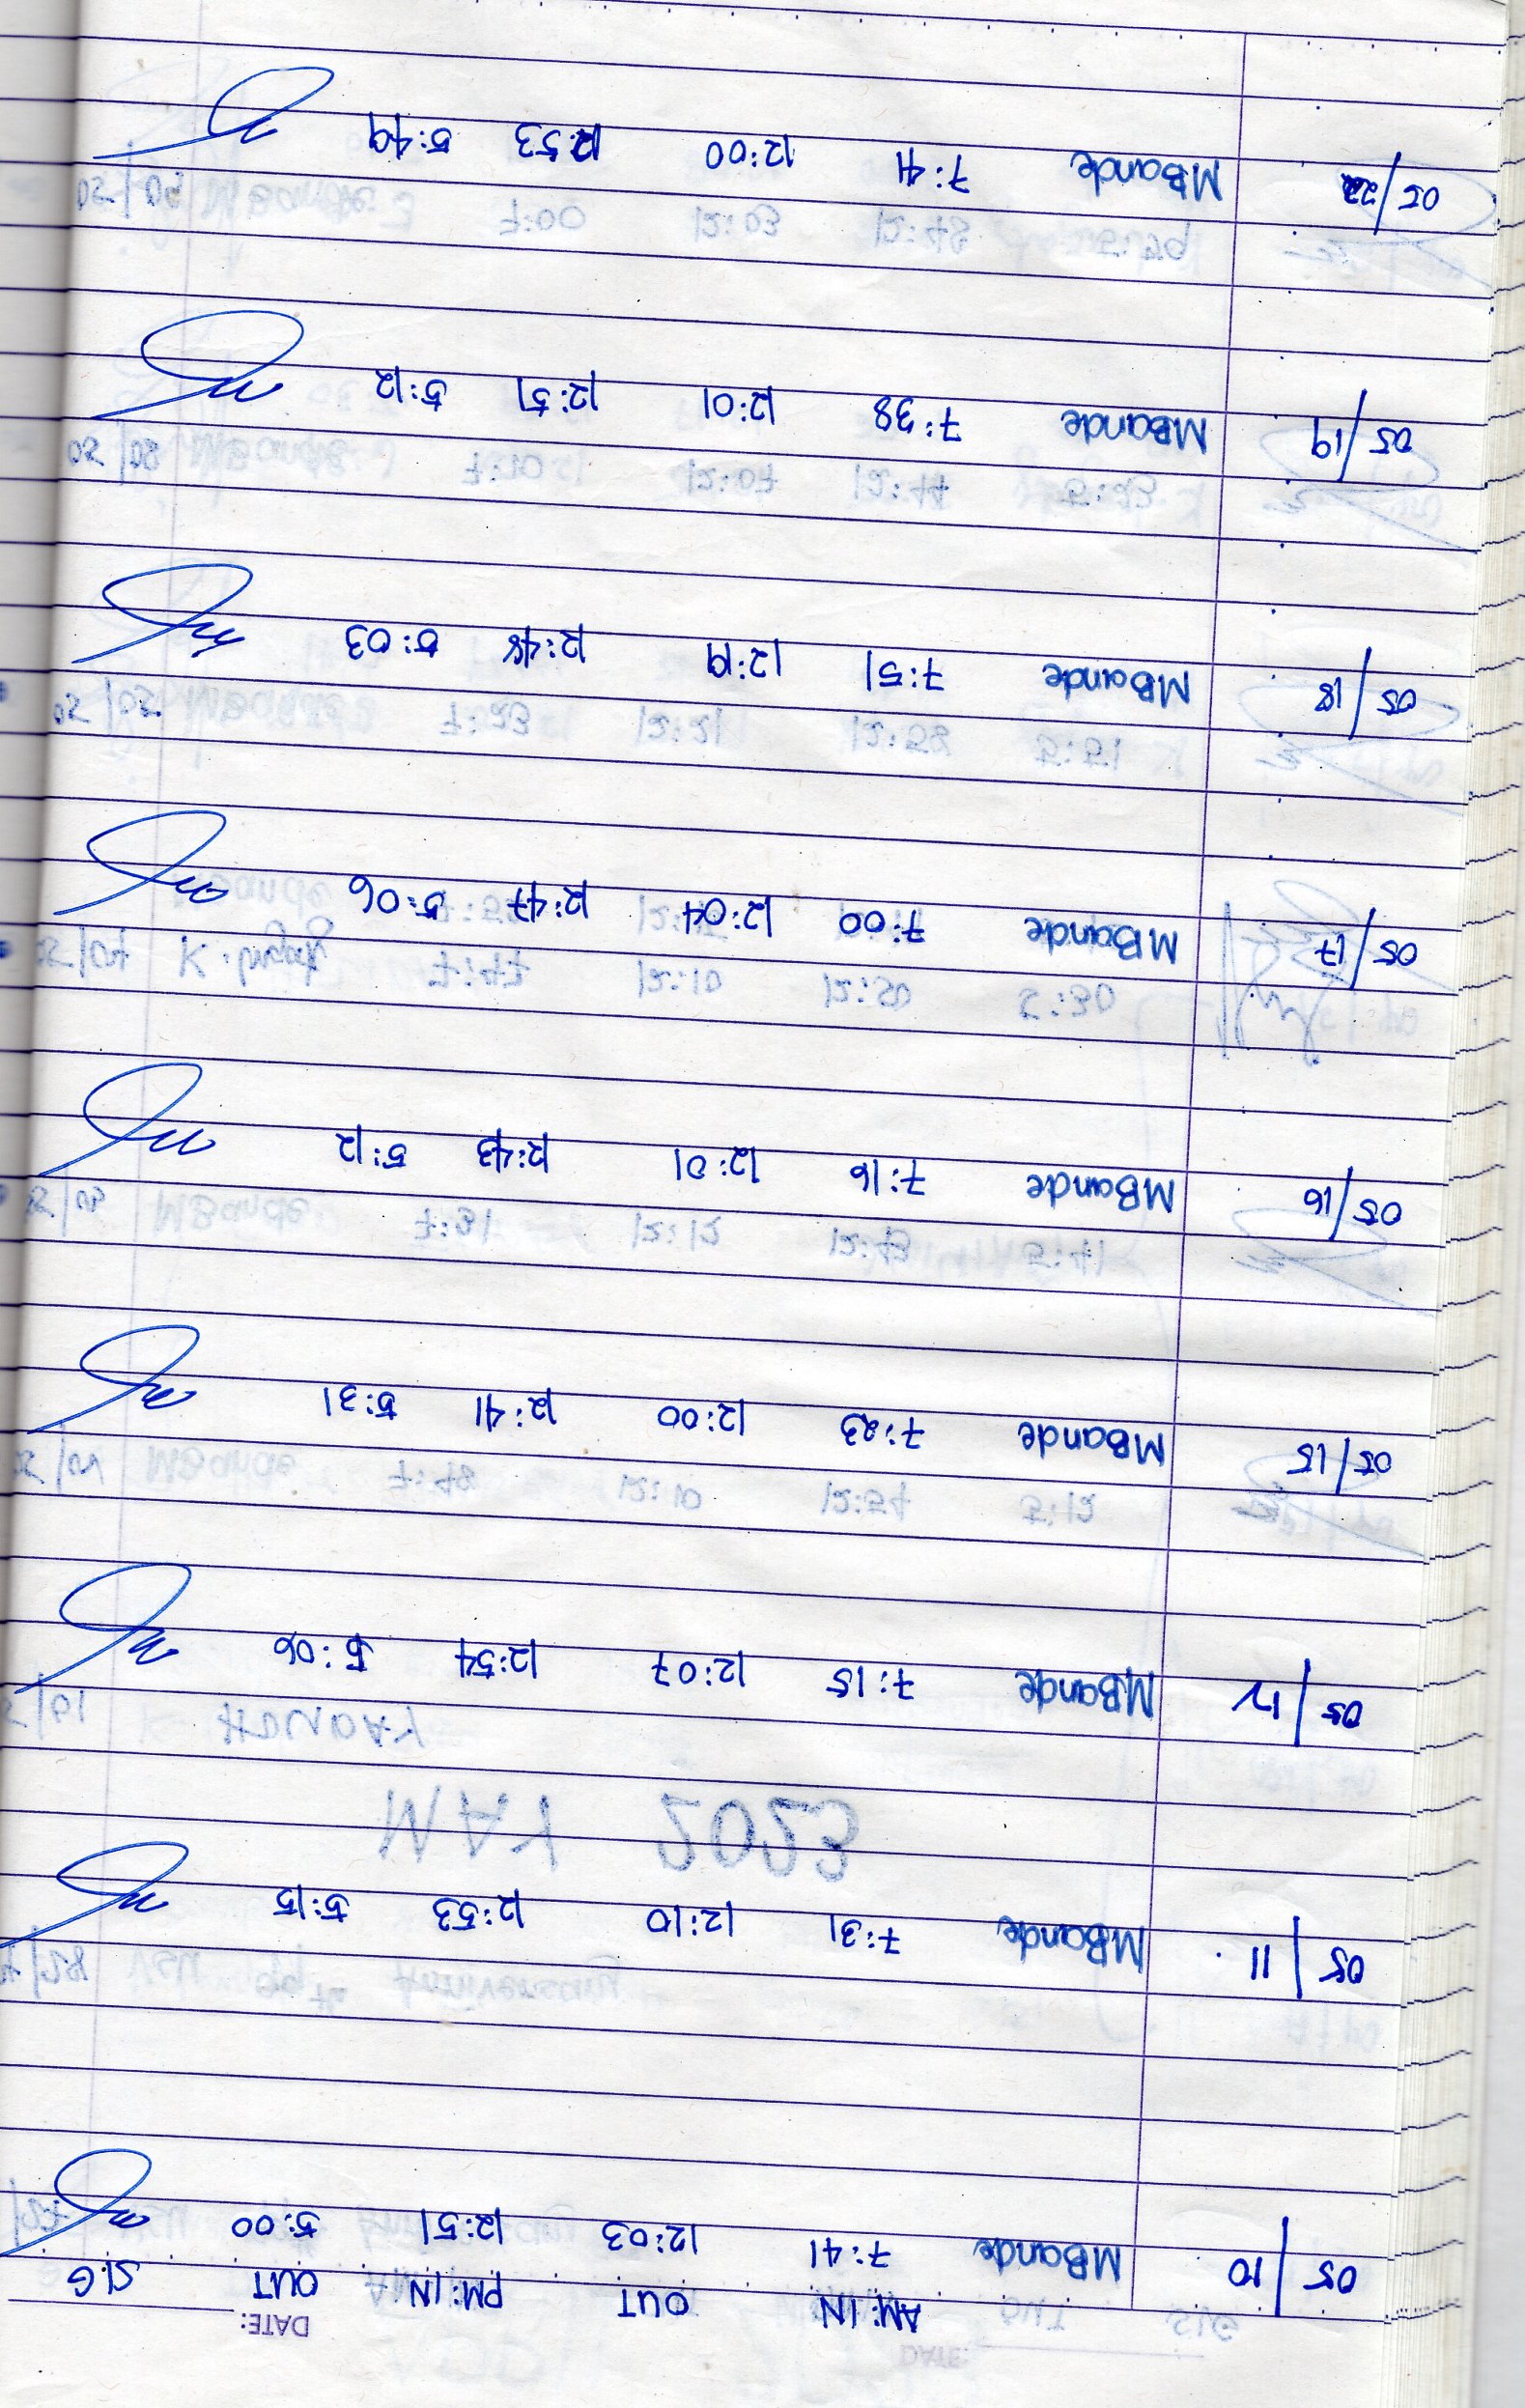 DATE:
AM:IN OUT PM:IN OUT SIG
05/10 MBande 7:41 12:03 12:51 5:00
05/11 MBande 7:31 12:10 12:53 5:15
05/12 MBande 7:15 12:07 12:54 5:06
05/15 MBande 7:23 12:00 12:41 5:31
05/16 MBande 7:16 12:01 12:43 5:12
05/17 MBande 7:00 12:04 12:47 5:06
05/18 MBande 7:51 12:19 12:48 5:03
05/19 MBande 7:38 12:01 12:51 5:12
05/22 MBande 7:41 12:00 12:53 5:49